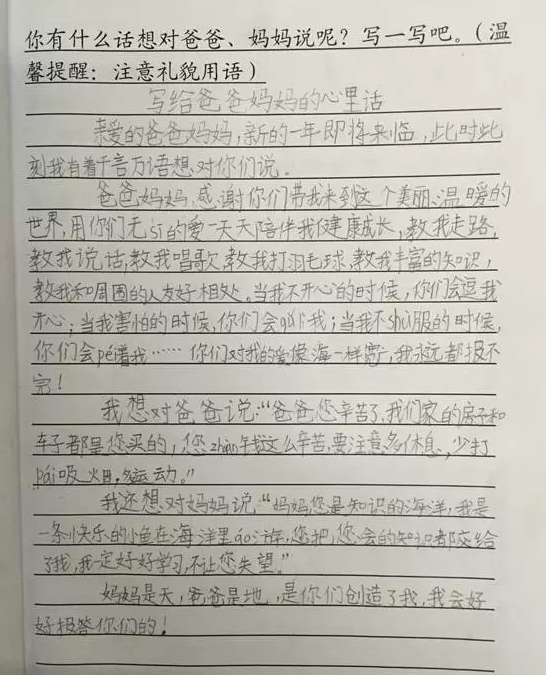 你有什么话想对爸爸、妈妈说呢？写一写吧。（温
馨提醒：注意礼貌用语）
写给爸爸妈妈的心里话
亲爱的爸爸妈妈，新的一年即将来临，此时此
刻我有着千言万语想对你们说。
爸爸妈妈，感谢你们带我来到这个美丽、温暖的
世界，用你们无sī的爱一天天陪伴我健康成长，教我走路，
教我说话，教我唱歌，教我打羽毛球，教我丰富的知识，
教我和周围的人友好相处。当我不开心的时候，你们会逗我
开心；当我害怕的时候，你们会gǔlì我；当我不shū服的时候，
你们会péi着我……你们对我的爱像海一样宽，我永远都报不
完！
我想对爸爸说：“爸爸您辛苦了，我们家的房子和
车子都是您买的，您zhèn钱这么辛苦，要注意多休息，少打
pái吸烟，多运动。”
我还想对妈妈说：“妈妈您是知识的海洋，我是
一条小快乐的小鱼在海洋里áo游，您把您会的知识都交给
了我，我一定好好学习，不让您失望。”
妈妈是天，爸爸是地，是你们创造了我，我会好
好报答你们的！